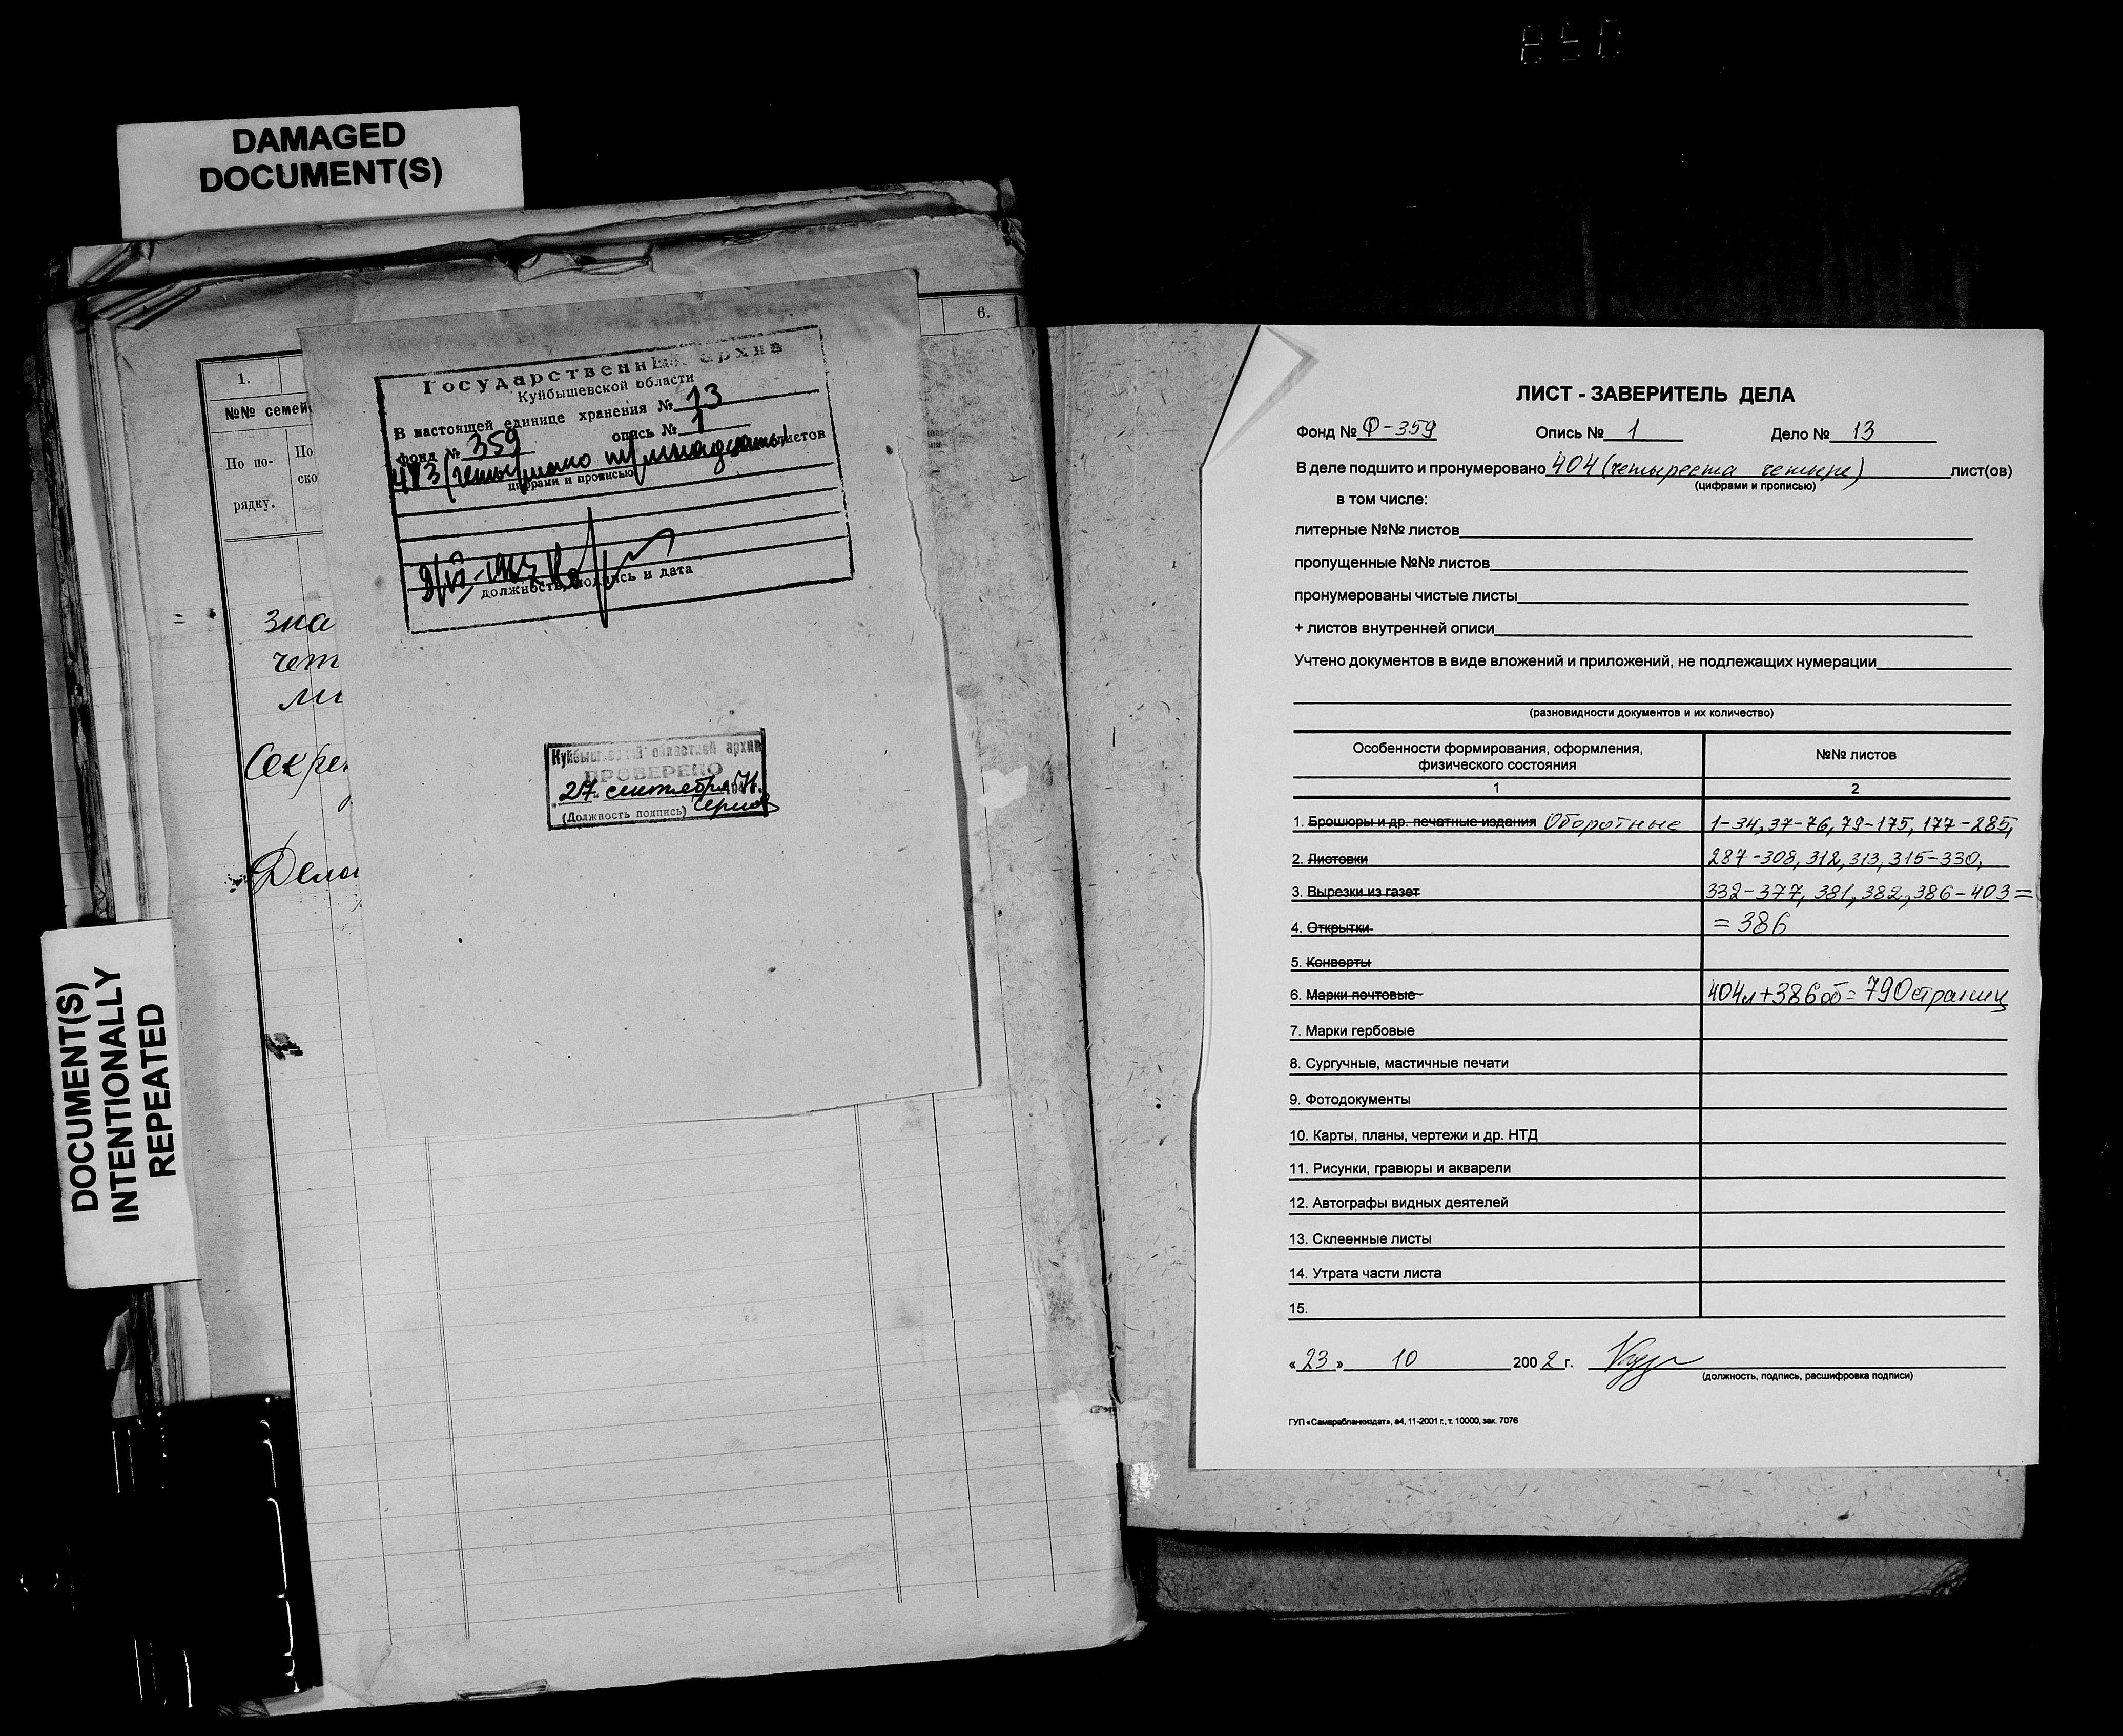 DAMAGED
DOCUMENT(S)
DOCUMENT(S)
INTENTIONALLY
REPEATED
1.
6.
№№ семей
По по-
рядку.
По
ско
зна
чет
ли
Секре
Дело
Государственный архив
Куйбышевской области
В настоящей единице хранения № 13
фонд № 359 опись № 1
413 (четыреста тринадцать) листов
цифрами и прописью
должность, подпись и дата
Куйбышевский областной архив
ПРОВЕРЕНО
"27" сентября
(Должность подпись)
ЛИСТ - ЗАВЕРИТЕЛЬ ДЕЛА
Фонд № Ф-359 Опись № 1 Дело № 13
В деле подшито и пронумеровано 404 (четыреста четыре) лист(ов)
(цифрами и прописью)
в том числе:
литерные №№ листов
пропущенные №№ листов
пронумерованы чистые листы
+ листов внутренней описи
Учтено документов в виде вложений и приложений, не подлежащих нумерации
(разновидности документов и их количество)
Особенности формирования, оформления,
физического состояния
№№ листов
1 2
1. Брошюры и др. печатные издания Оборотные 1-34, 37-76, 79-175, 177-285,
2. Листовки 287-308, 312, 313, 315-330,
3. Вырезки из газет 332-377, 381, 382, 386-403=
4. Открытки =386
5. Конверты
6. Марки почтовые 404л+386об=790страниц
7. Марки гербовые
8. Сургучные, мастичные печати
9. Фотодокументы
10. Карты, планы, чертежи и др. НТД
11. Рисунки, гравюры и акварели
12. Автографы видных деятелей
13. Склеенные листы
14. Утрата части листа
15.
«23» 10 2002 г.
(должность, подпись, расшифровка подписи)
ГУП «Самарабланкиздат», а4, 11-2001 г., т. 10000, зак. 7076